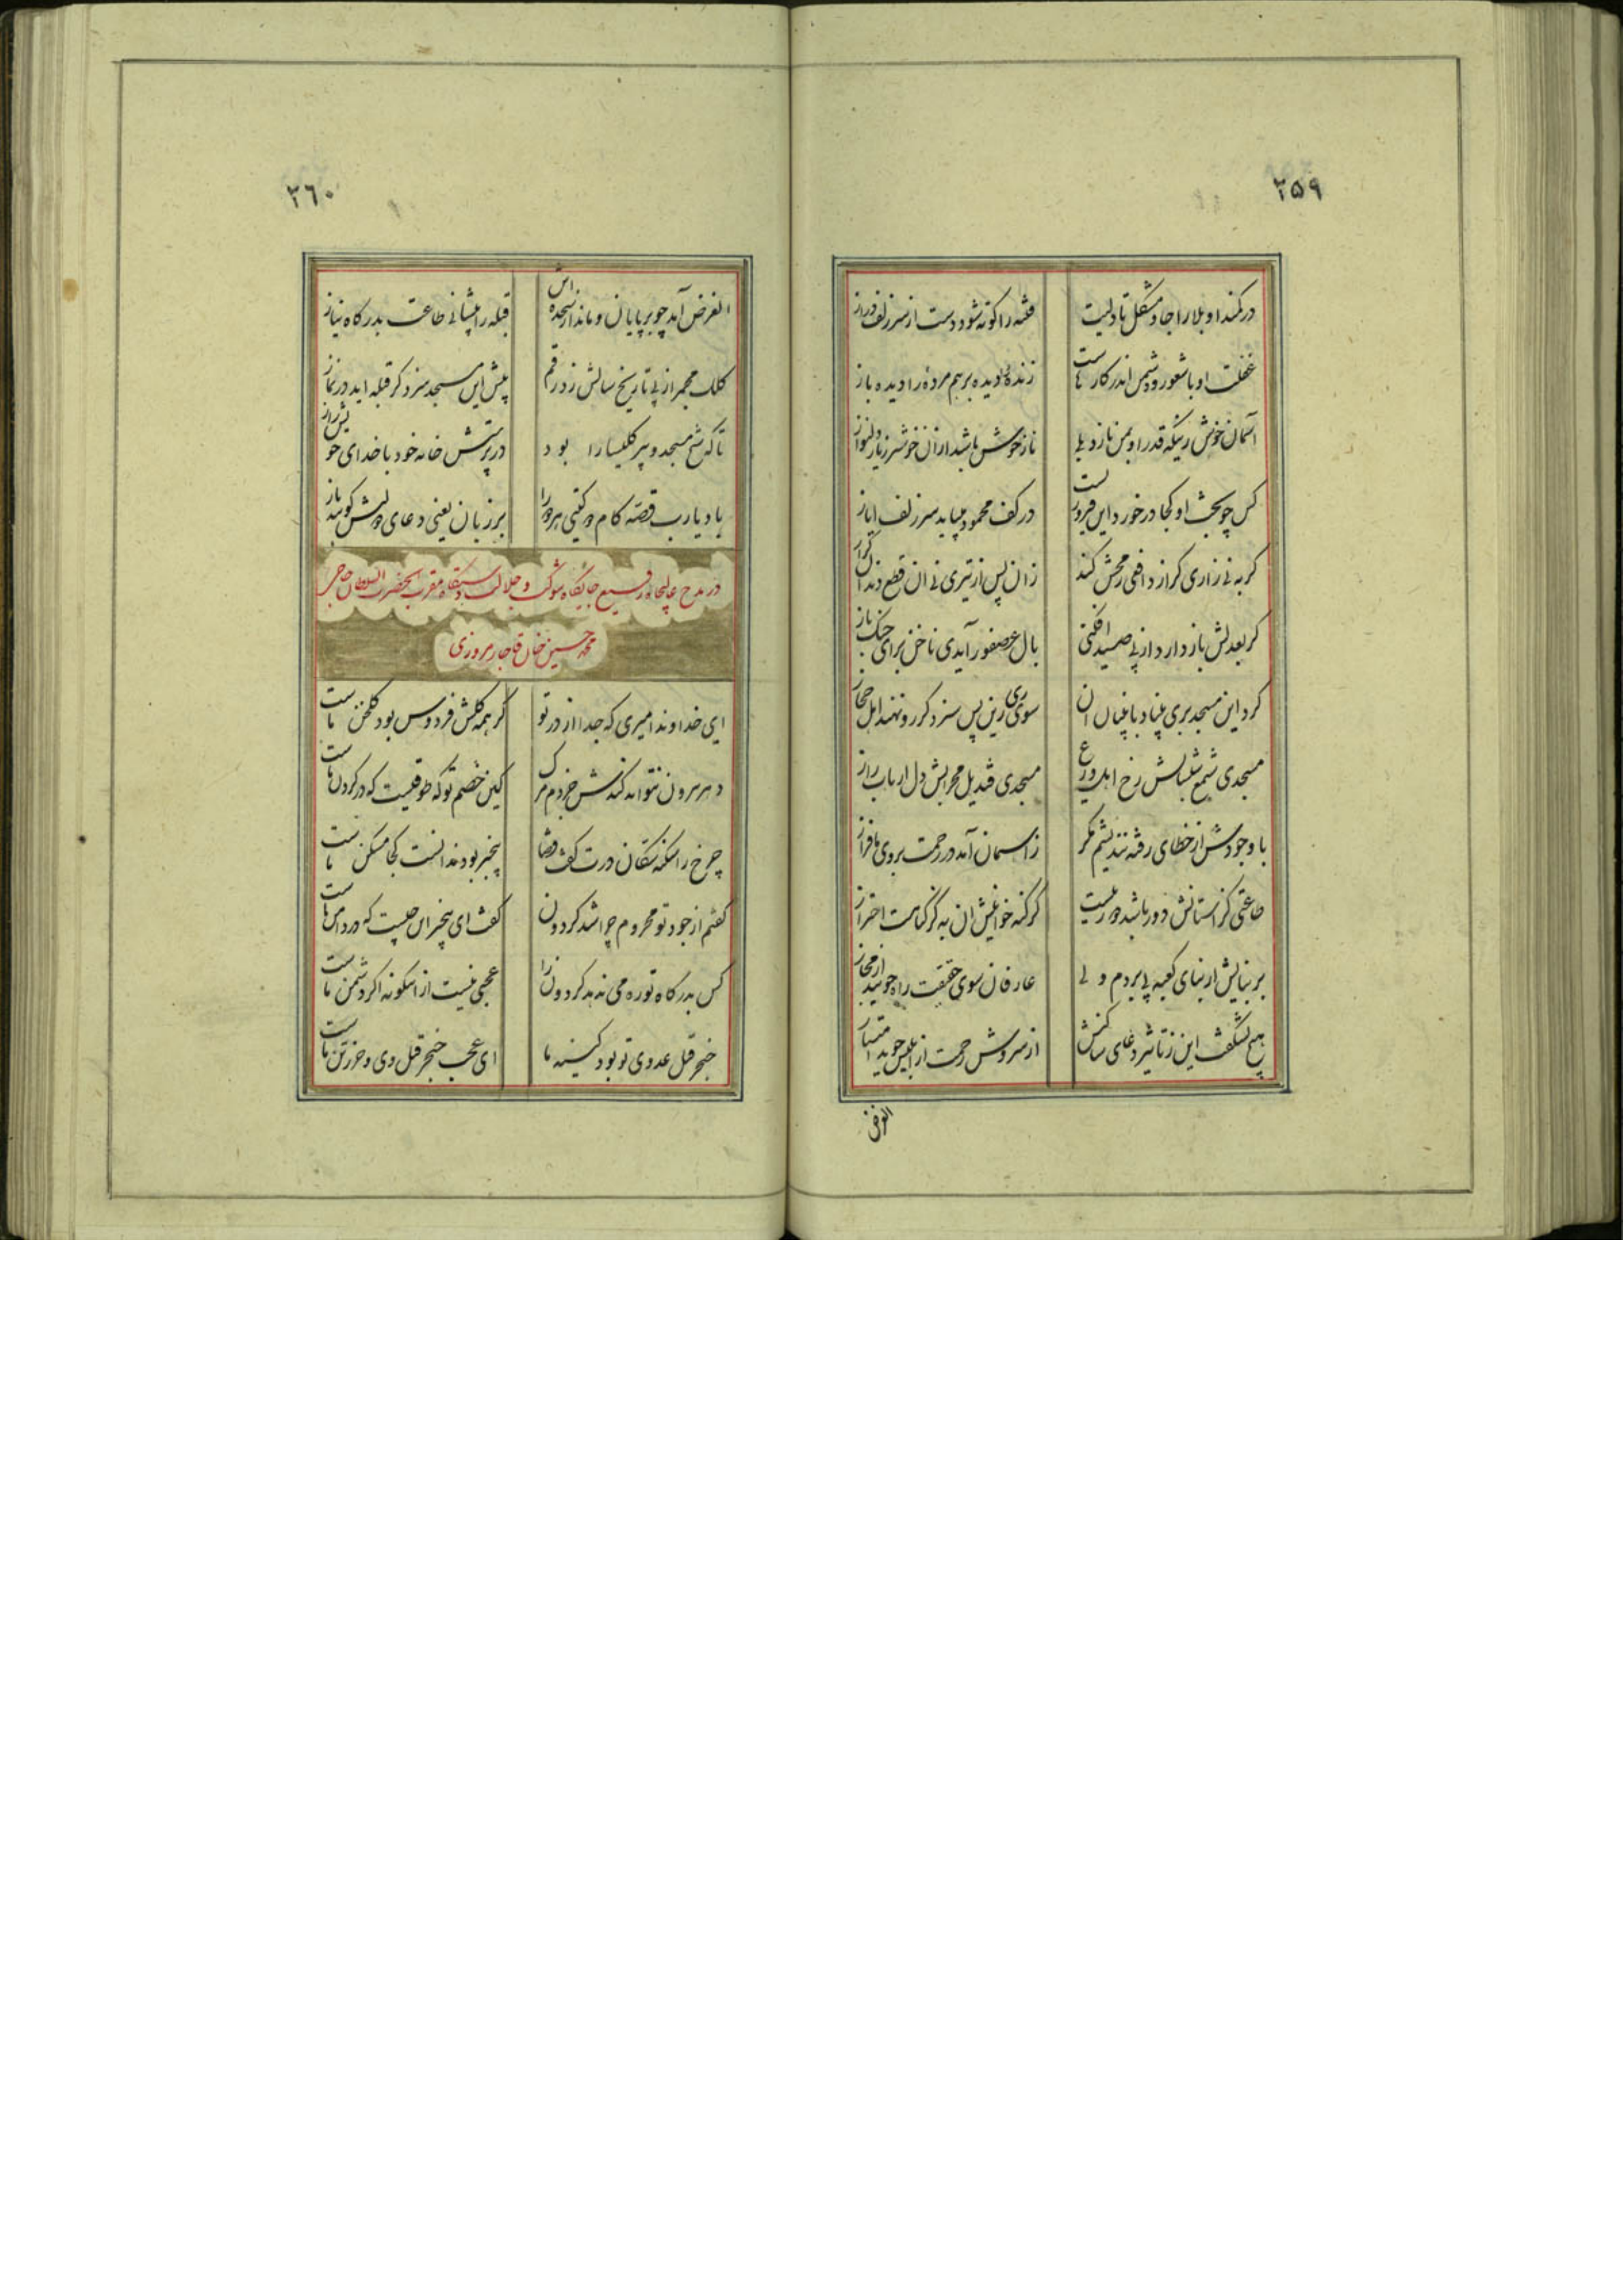 ۳۵۹
در کمند او بلا را جا و مشکل تا ولیت
فتنه را کوته شود دست از سر زلف دراز
غفلت او با شعور و دشمن اندر کارهاست
زنده او دیده بر هم مرده را دیده باز
آسمان خوش رنکه قدر او بمن نازد بلی
ناز خوش باشد از آن خوشتر ز یار دلنواز
کس چو بخت او کجا در خورد این فیروزیست
در کف محمود میباید سر زلف ایاز
کر به نی زاری کرازد افعی رمحش کند
زان پس از تیری نی آن قطع دندان کراز
کر بعدلش باز دارد از پی صید افکنی
بال عصفور آیدی ناخن برای چنک باز
کرد این مسجد بری بنیاد با بنیان آن
سوی ری زین پس سزد کر رو نهند اهل حجاز
مسجدی شمع شبستانش رخ اهل ورع
مسجدی قندیل محرابش دل ارباب راز
با وجودش از خطای رفته نندیشم مکر
ز آسمان آمد در رحمت بروی ما فراز
طاعتی کز آستانش دور باشد در بهشت
کر کنه خوانیش آن به کز کناهت احتراز
بر بنایش از بنای کعبه پی بردم ولی
عارفان سوی حقیقت راه جویند از مجاز
هیچ نشکفت این ز تاثیر دعای ساکنش
از سروش رحمت ار ابلیس جوید امتیاز
الغرض
۳۶۰
الغرض آمد چو بر پایان و ماند از سجده اش
قبله را پیشانی طاعت بدرکاه نیاز
کلک مجمر از پی تاریخ سالش زد رقم
پیش این مسجد سزد کر قبله آید در نماز
تا که شیخ مسجد و پیر کلیسا را بود
در پرستش خانه خود با خدای خویش راز
باد یا رب قصه کام دو کیتی مر ورا
بر زبان یعنی دعای دولتش کوینده باز
در مدح عالیجاه رفیع جایکاه شوکت و جلالت دستکاه مقرب الحضرت السلطان حاجی
محمد حسین خان قاجار مروزی
ای خداوند امیری که جدا از در تو
کر همه کلشن فردوس بود کلخن ماست
دهر بیرون نتواند کندش جز دم مرک
کین خصم تو که طوقیست که در کردن ماست
چرخ را سکنه سکان درت کفت قضا
بیخبر بود ندانست کجا مسکن ماست
کفتم از جود تو محروم چرا شد کردون
کفت ای بیخبر این چیست که در دامن ماست
کس بدرکاه تو ره می ندهد کردون را
عجبی نیست از اینکونه اکر دشمن ماست
خنجر قتل عدوی تو بود کینه ما
ای عجب خنجر قتل وی و حرز تن ماست